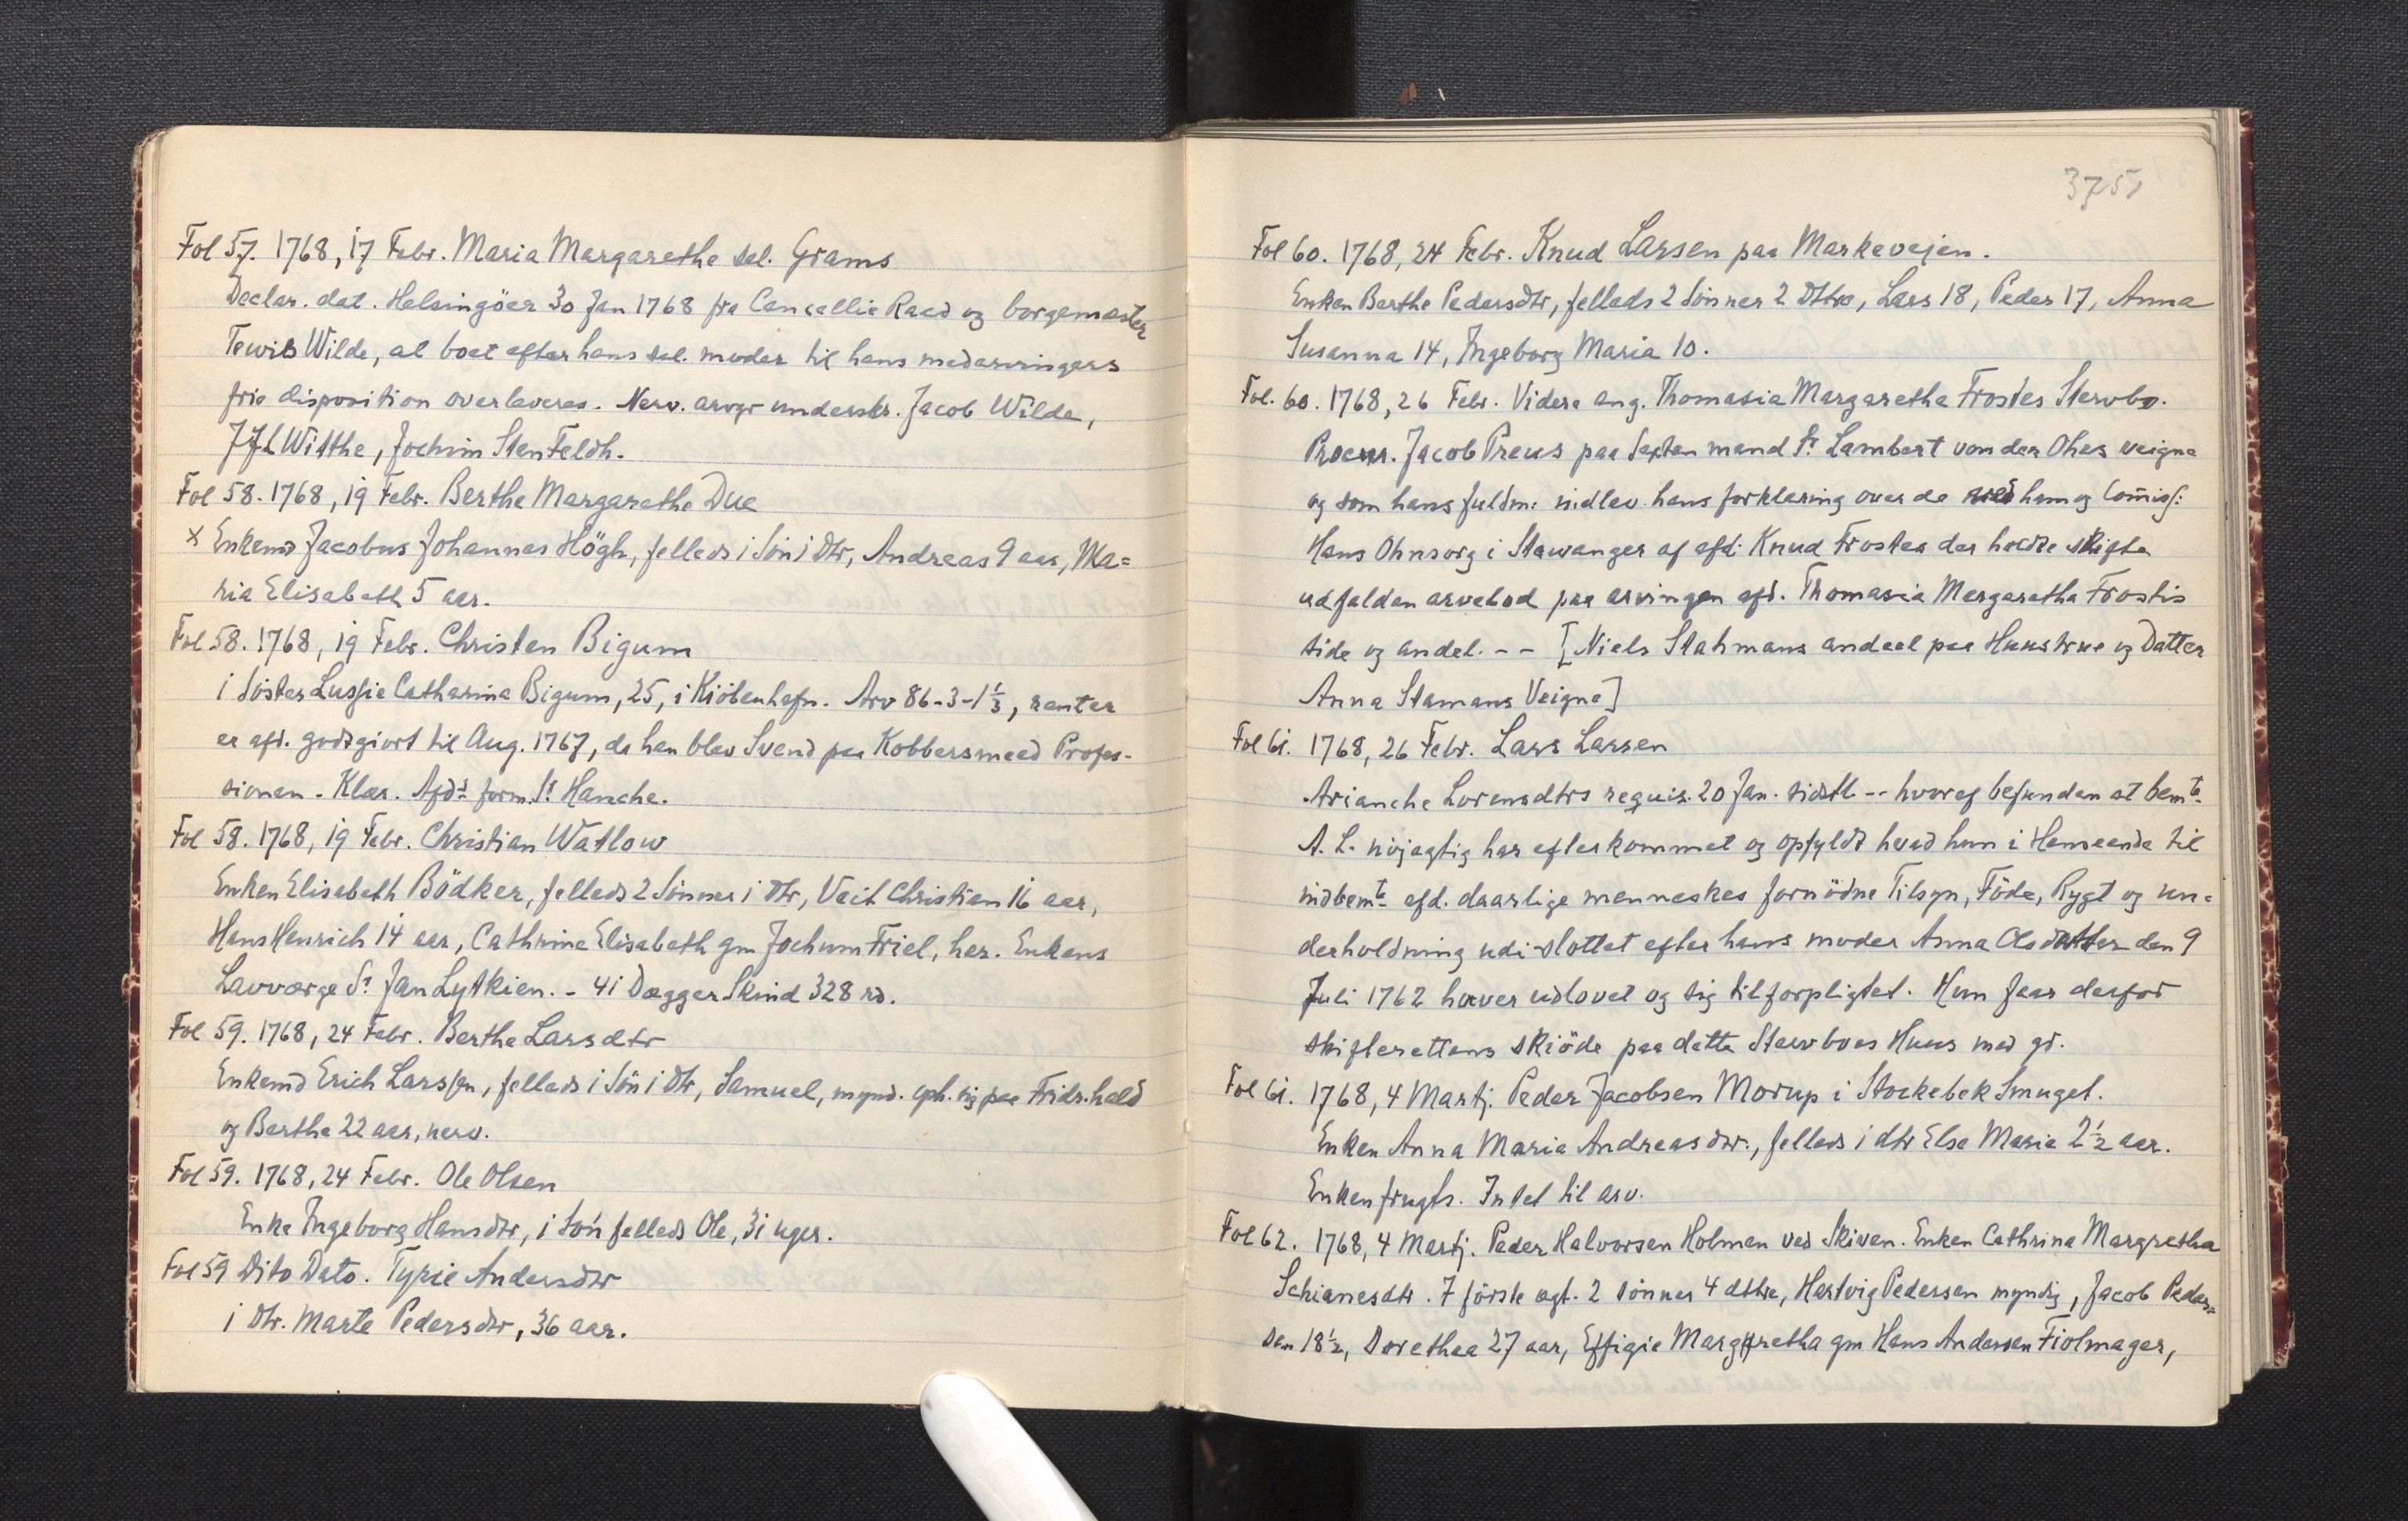 Fol 57. 1768, 17 Febr. Maria Margarethe sel. Grams
Declar. dat. Helsingöer 30 Jan 1768 fra Cancellie Raad og borgemester
Tewis Wilde, at boet efter hans sal. moder til hans medarvingers
frie disposition overleveres. Nerv. arvgr underskr. Jacob Wilde,
Witthe, Jochim Stenfeldh.
Fol 58. 1768, 19 Febr. Berthe Margarethe Due
x Enkemd Jacobus Johannes Högh, felleds 1 Sön 1 Dtr, Andreas 9 aar, Ma=
ria Elisabeth 5 aar.
Fol 58. 1768, 19 Febr. Christen Bigum
1 Söster Lussie Catharina Bigum, 25, i Kiöbenhafn. Arv 86-3-1 1/3, renter
er afd. godtgiort til Aug. 1767, da han blev Svend paa Kobbersmeed Profes-
sionen. Klar. Afds form. Sr Hanche.
Fol 58. 1768, 19 Febr. Christian Watlow
Enken Elisabeth Bödker, felleds 2 Sönner 1 Dtr, Veit Christian 16 aar,
Hans Henrich 14 aar, Cathrine Elisabeth gm Jochum Friel, her. Enkens
Lavværge Sr Jan Lytkien. - 41 Dægger Skind 328 rd.
Fol 59. 1768, 24 Febr. Berthe Larsdtr
Enkemd Erich Larssen, felleds 1 Sön 1 Dtr, Samuel, mynd. oph. sig paa Fridr.hald
og Berthe 22 aar, nerv.
Fol 59. 1768, 24 Febr. Ole Olsen
Enke Ingeborg Hansdtr, 1 Sön felleds Ole, 31 uger.
Fol 59 Dito Dato. Tyrie Andersdtr
1 Dtr. Marte Pedersdtr, 36 aar.
3751
Fol 60. 1768, 24 Febr. Knud Larsen paa Markevejen.
Enken Berthe Pedersdtr, felleds 2 Sönner 2 Dttre, Lars 18, Peder 17, Anna
Susanna 14, Ingeborg Maria 10.
Fol. 60. 1768, 26 Febr. Videre ang. Thomasia Margaretha Frostes Stervbo.
Procur. Jacob Preus paa Sexten mand Sr Lambert von der Ohes veigne
og som hans fuldm: nidlev. hans forklaring over de ved ham og Comiss:
Hans Ohnsorg i Stawanger af afd. Knud Frostes der holdte skifte
udfalden arvelod paa arvingen afd. Thomasia Margaretha Frostis
side og andel. - - [Niels Stahmans andeel paa Huustrue og Datter
Anna Stamans Veigne]
Fol 61. 1768, 26 Febr. Lars Larsen
Arianche Lorensdtrs requis. 20 Jan. sidstl. - - hvoraf befunden at bemte
A. L. nöjagtig har efterkommet og opfyldt hvad hun i Henseende til
nidbemte afd. daarlige menneskes fornödne Tilsyn, Föde, Rygt og un=
derholdning udi slottet efter hans moder Anna Olsdatter den 9
Juli 1762 haver udlovet og sig tilforpligtet. Hun faar derfor
skifterettens skiöde paa dette Stervboes Huus med gr.
Fol 61. 1768, 4 Martj. Peder Jacobsen Morup i Stockebek Smuget.
Enken Anna Maria Andreasdtr., felleds 1 dtr Else Maria 2 1/2 aar.
Enken frugts. Intet til arv.
Fol 62. 1768, 4 Martj. Peder Halvorsen Holmen ved Skiven. Enken Cathrina Margretha
Schianesdtr. I förste egt. 2 sönner 4 dttre, Hartvig Pedersen myndig, Jacob Peder=
sen 18 1/2, Dorethea 27 aar, Effigie Margretha gm Hans Andersen Fiolmager,